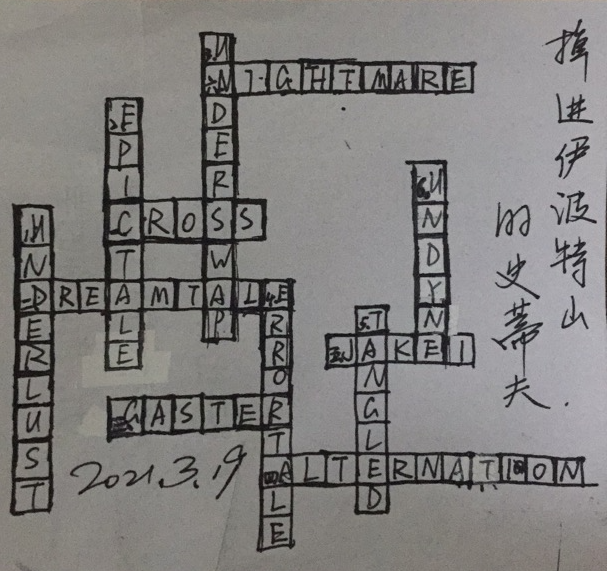 UNDERSWAP
NIGHTMARE
EPICTALE
CROSS
UNDYNE
UNDERLUST
DREAMTALE
ERRORTALE
TANGLED
NAKEI
GASTER
ALTERNATION
2021.3.19
进伊波特山
的史蒂夫.